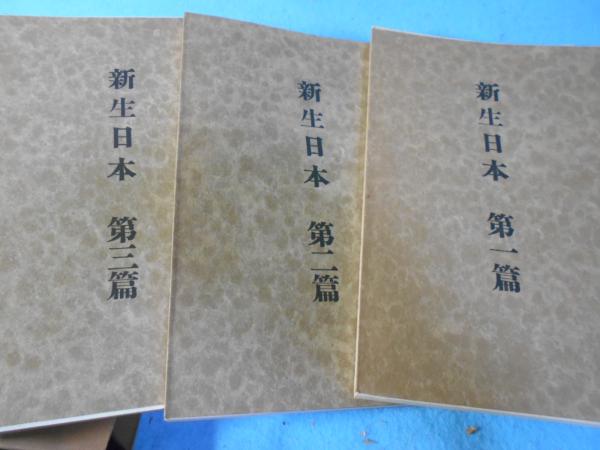 新生日本 第一篇
新生日本 第二篇
新生日本 第三篇